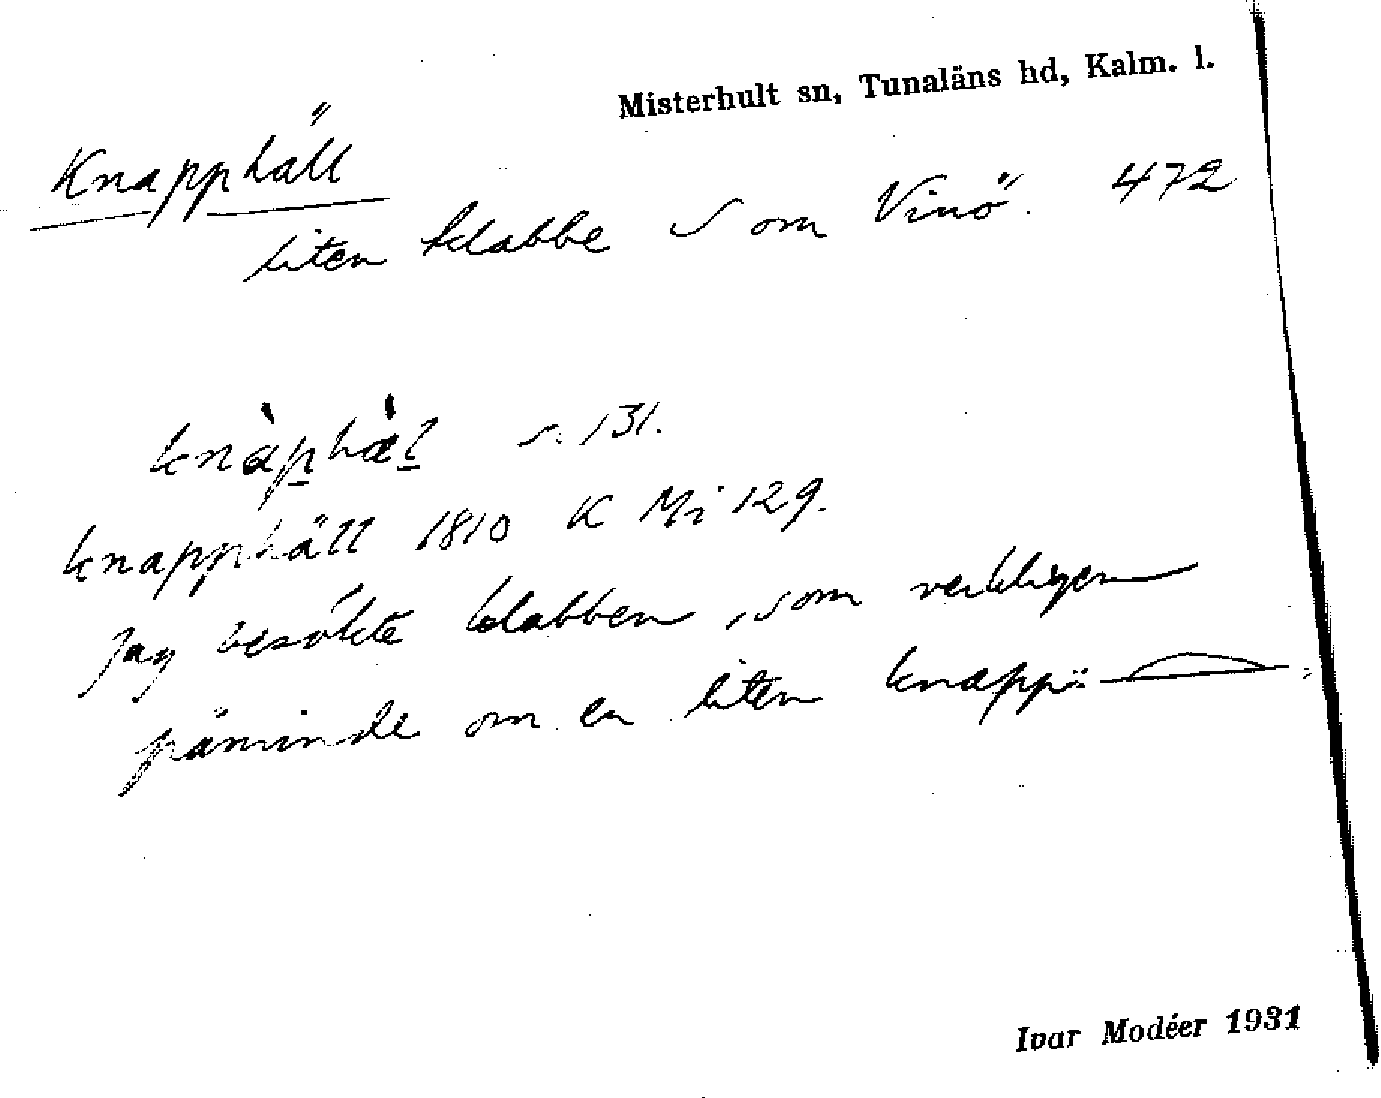 Misterhult sn, Tunaläns hd, Kalm. l.
Knapphäll
liten klabbe S om Vinö. 472
knàp̲hæ̀l̲ s. 131.
knapphäll 1810 K Mi 129.
Jag besökte klabben, som verkligen
påminde om en liten knapp:
Ivar Modéer 1931